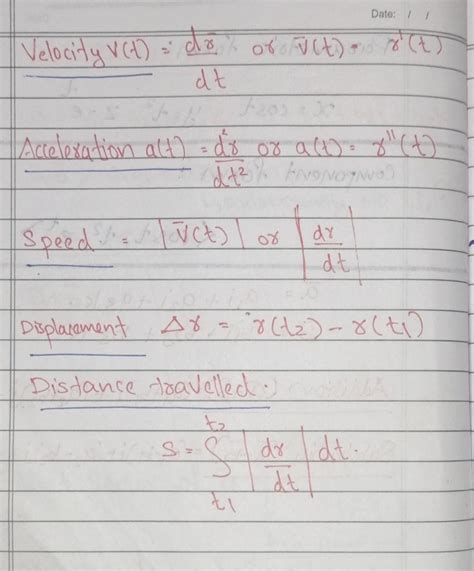 Date: / /
Velocity v(t) = dr̄/dt or v̄(t) = r'(t)
Acceleration a(t) = d²r/dt² or a(t) = r''(t)
Speed = |v̄(t)| or |dr/dt|
Displacement Δr = r(t₂) - r(t₁)
Distance travelled :
S = ∫_{t₁}^{t₂} |dr/dt| dt.